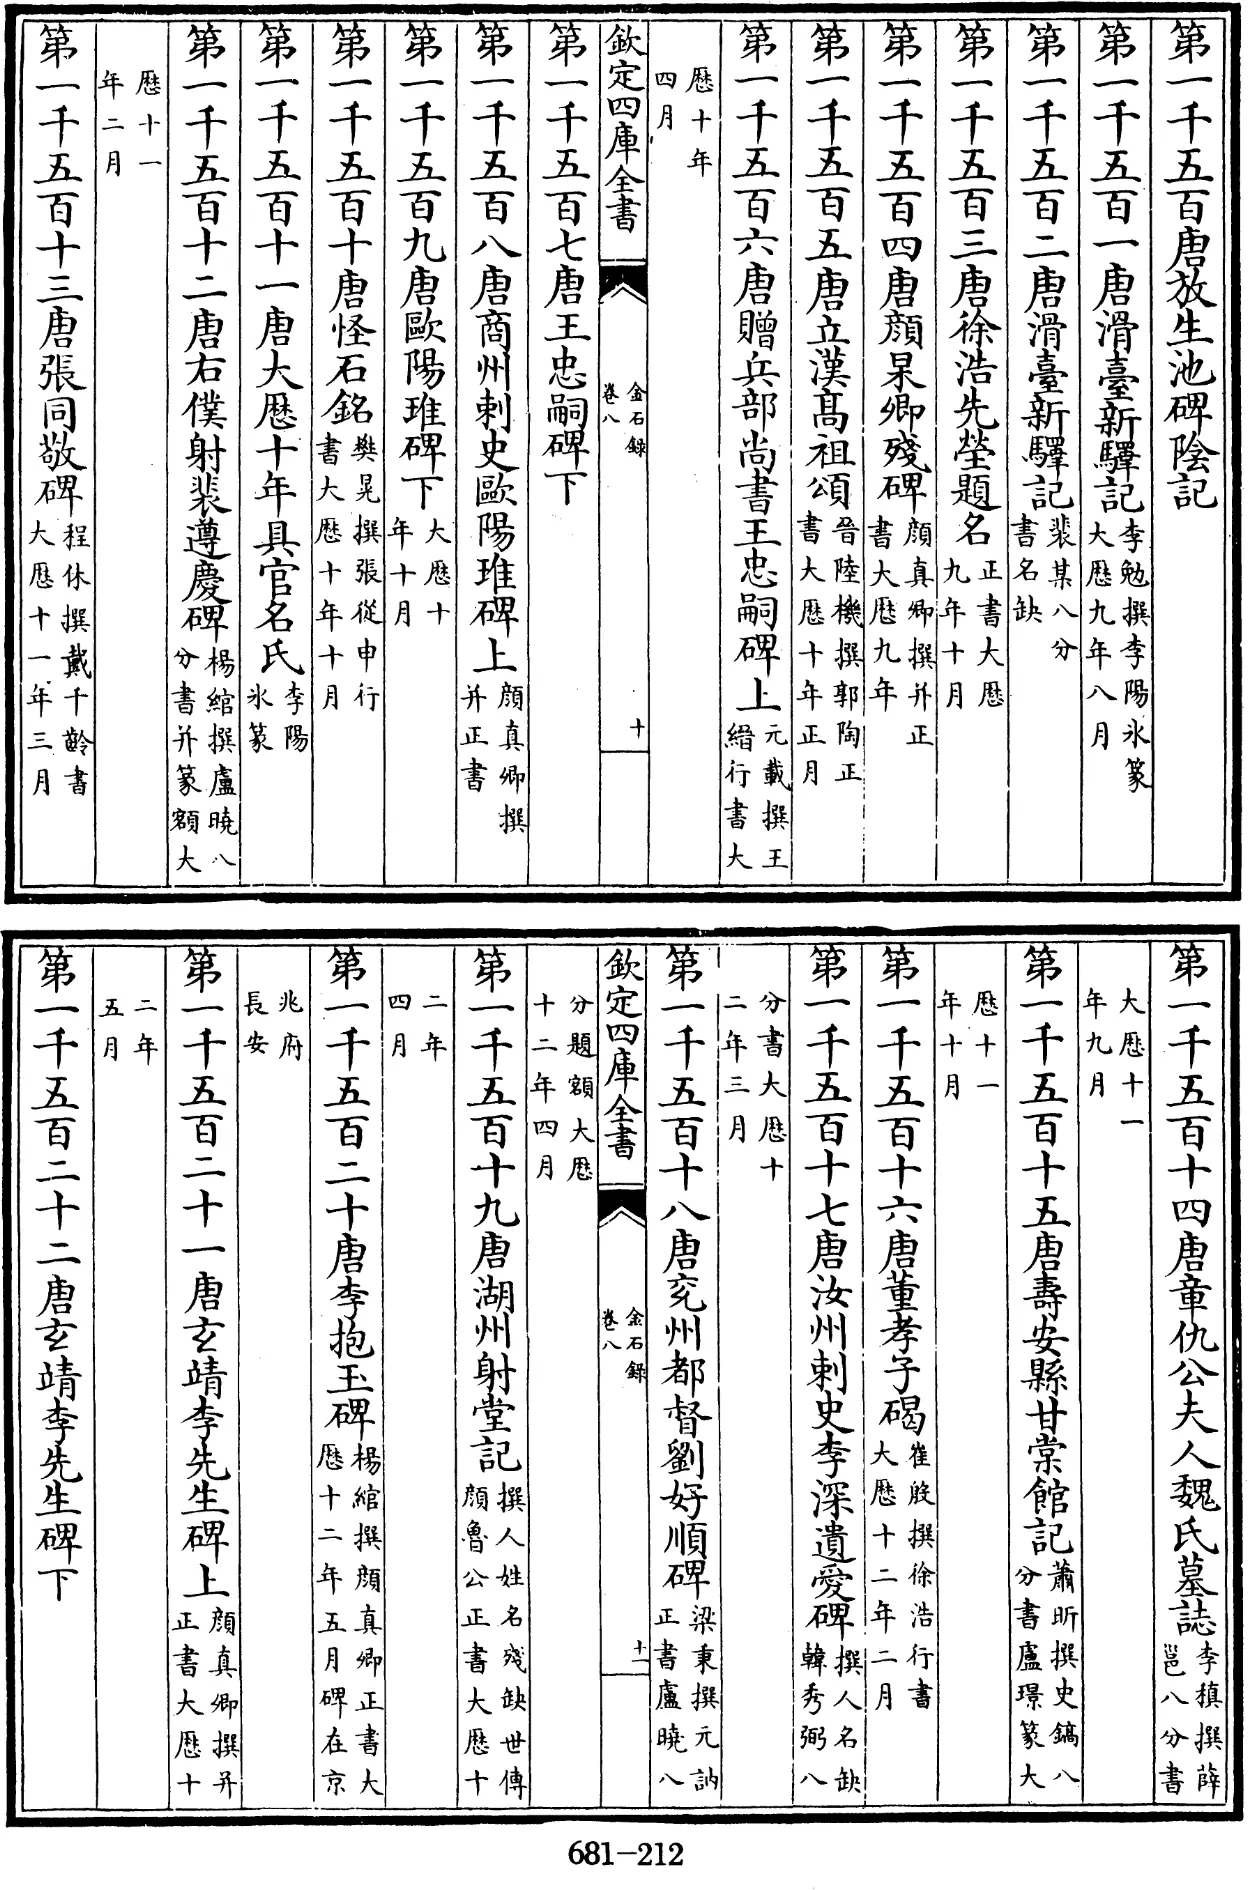 第一千五百唐放生池碑陰記
第一千五百一唐滑臺新驛記李勉撰李陽氷篆大歴九年八月
第一千五百二唐滑臺新驛記裴某八分書名缺
第一千五百三唐徐浩先塋題名正書大歴九年十月
第一千五百四唐顔杲卿殘碑顔真卿撰并正書大歴九年
第一千五百五唐立漢髙祖頌晉陸機撰郭陶正書大歴十年正月
第一千五百六唐贈兵部尚書王忠嗣碑上元載撰王縉行書大
歴十年四月
欽定四庫全書 金石錄卷八 十
第一千五百七唐王忠嗣碑下
第一千五百八唐商州刺史歐陽琟碑上顔真卿撰并正書
第一千五百九唐歐陽琟碑下大歴十年十月
第一千五百十唐怪石銘樊晃撰張從申行書大歴十年十月
第一千五百十一唐大歴十年具官名氏李陽氷篆
第一千五百十二唐右僕射裴遵慶碑楊綰撰盧曉八分書并篆額大
歴十一年二月
第一千五百十三唐張同敬碑程休撰戴千齡書大歴十一年三月
第一千五百十四唐章仇公夫人魏氏墓誌李稹撰薛邕八分書
大歴十一年九月
第一千五百十五唐壽安縣甘棠館記蕭昕撰史鎬八分書盧璟篆大
歴十一年十月
第一千五百十六唐董孝子碣崔殷撰徐浩行書大歴十二年二月
第一千五百十七唐汝州刺史李深遺愛碑撰人名缺韓秀弼八
分書大歴十二年三月
第一千五百十八唐兖州都督劉好順碑梁秉撰元訥正書盧曉八
分題額大歴十二年四月
欽定四庫全書 金石錄卷八 十一
第一千五百十九唐湖州射堂記撰人姓名殘缺世傳顔魯公正書大歴十
二年四月
第一千五百二十唐李抱玉碑楊綰撰顔真卿正書大歴十二年五月碑在京
兆府長安
第一千五百二十一唐玄靖李先生碑上顔真卿撰并正書大歴十
二年五月
第一千五百二十二唐玄靖李先生碑下
681-212